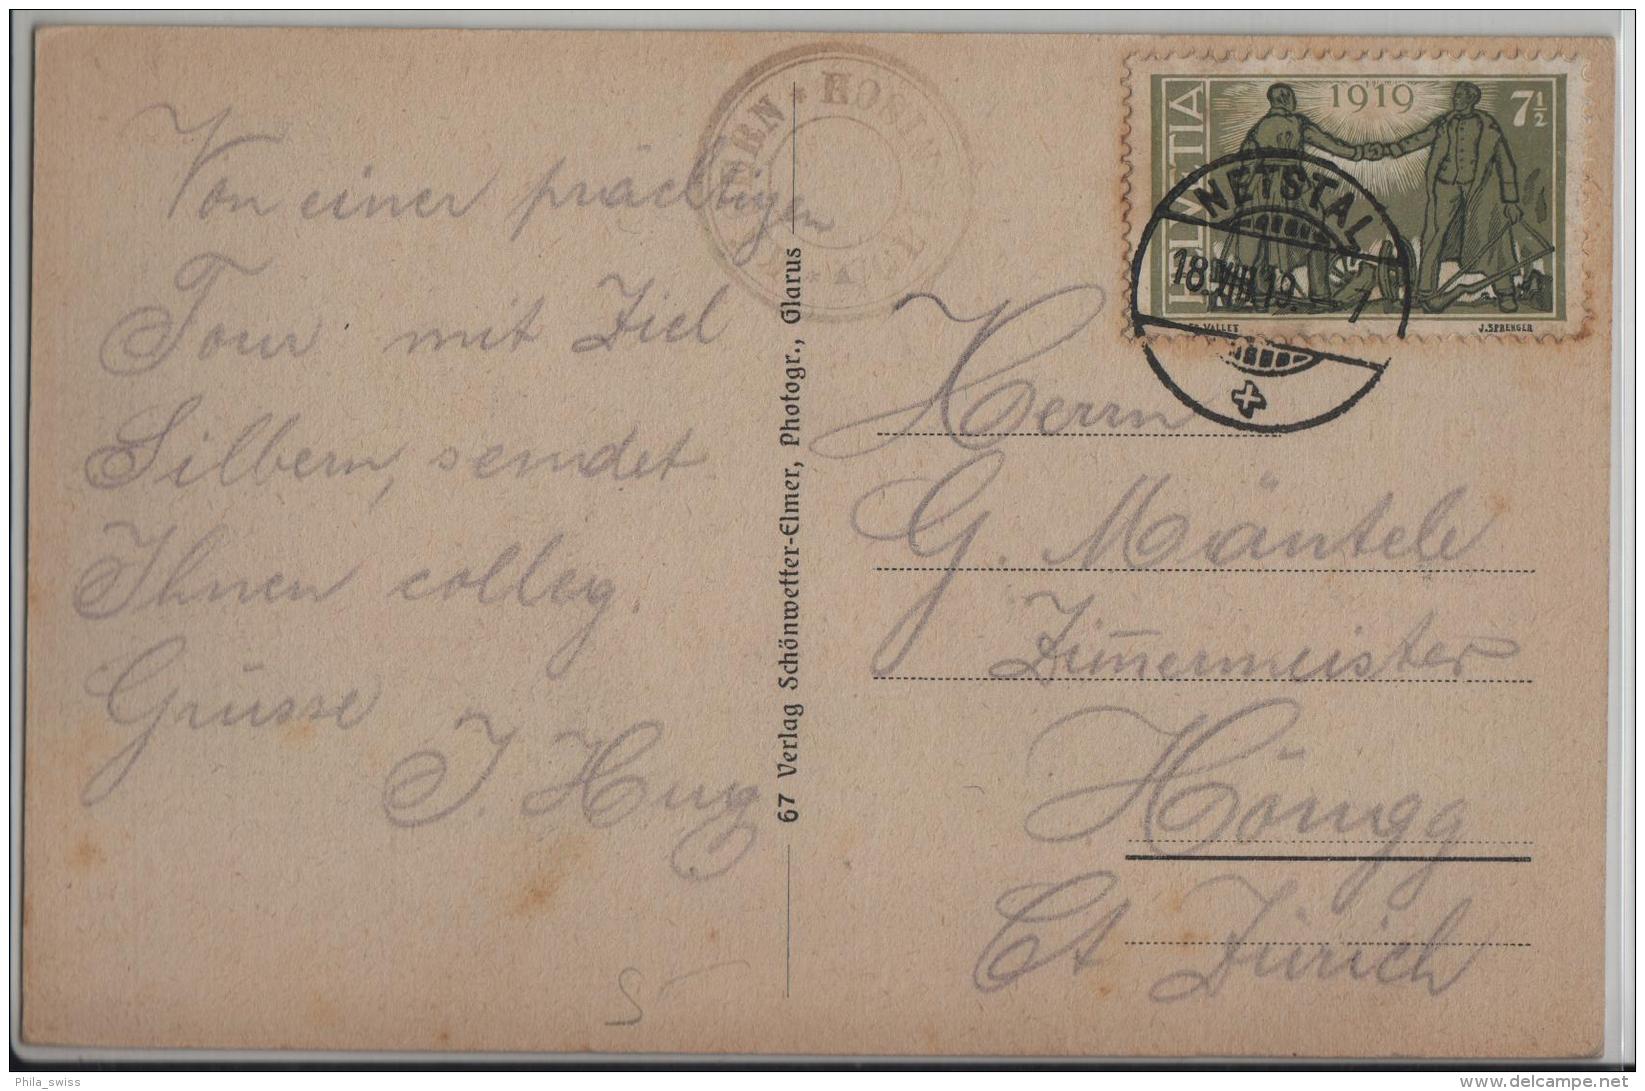 Von einer prächtigen
Tour mit Ziel
Silbern, sendet
Ihnen colleg.
Grüsse
J. Hug
67 Verlag Schönwetter-Elmer, Photogr., Glarus
HELVETIA
1919
7½
VALLET
J. SPRENGER
NETSTAL
18.VIII.19. 7
Herrn
G. Mäntele
Zimmermeister
Höngg
Ct Zürich
Phila_swiss
delcampe.net